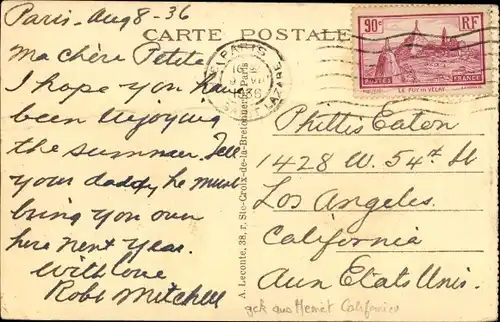 Paris. Aug 8-36
CARTE POSTALE
Ma chère Petite
I hope you have
been enjoying
the summer. Tell
your daddy he must
bring you over
here next year.
With love
Robt Mitchell
A. Leconte, 38, r. Ste-Croix-de-la-Bretonnerie, Paris
PARIS
1936
ST LAZARE
90c
RF
POSTES
FRANCE
LE PUY EN VELAY
Phillis Eaton
1428 W. 54th St
Los Angeles.
California
Aux Etats Unis.
gck aus Hemet Californien